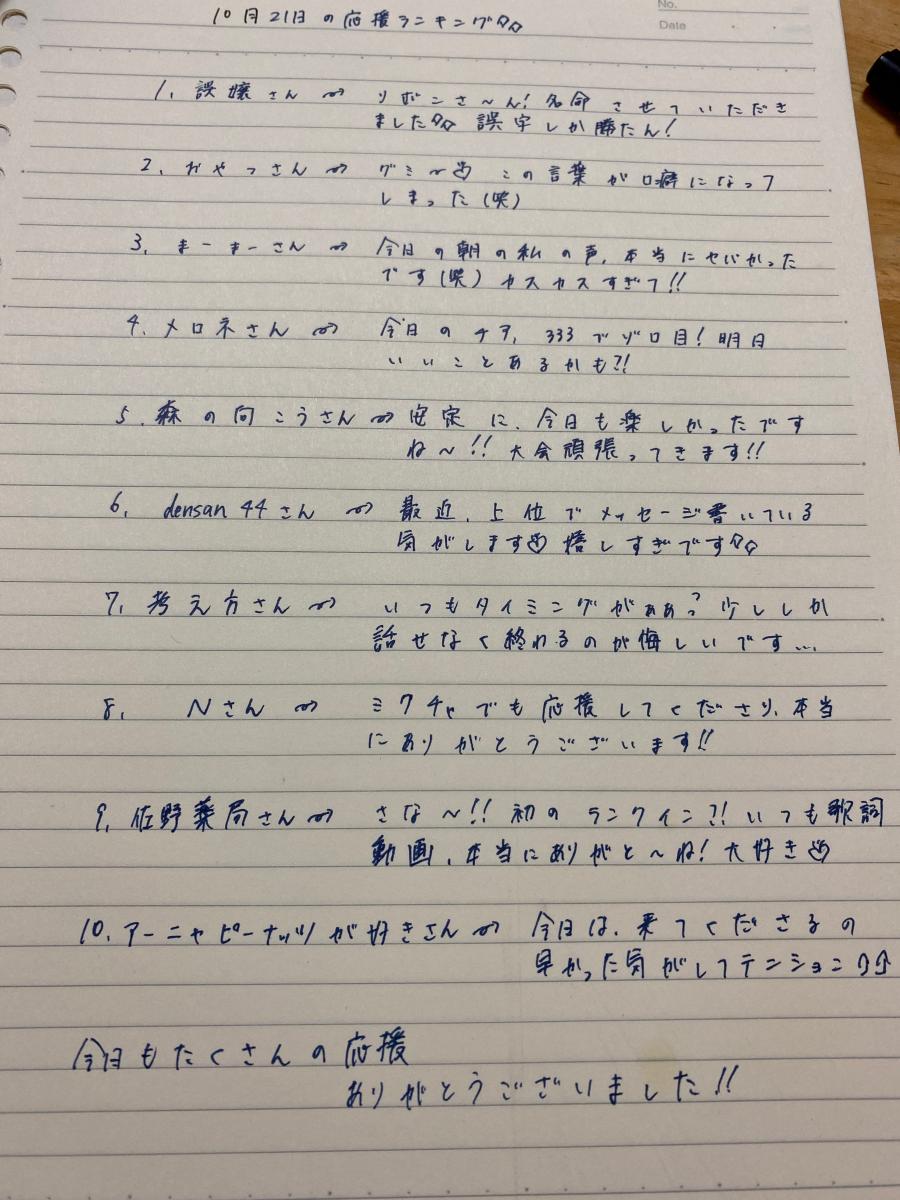 No.
Date
10月21日の応援ランキング
1. 誤嬢さん → リボンさ〜ん!名命させていただき
ました 誤字しか勝たん!
2. おやっさん → グミ〜♡ この言葉が口癖になって
しまった(笑)
3. まーまーさん → 今日の朝の私の声、本当にヤバかった
です(笑) カスカスすぎて!!
4. メロネさん → 今日のチア、333でゾロ目!明日
いいことあるかも?!
5. 森の向こうさん → 安定に、今日も楽しかったです
ね〜!! 大会頑張ってきます!!
6. densan44さん → 最近、上位でメッセージ書いている
気がします♡ 嬉しすぎです
7. 考え方さん → いつもタイミングがぁぁ? 少ししか
話せなく終わるのが悔しいです…
8. Nさん → ミクチャでも応援してくださり、本当
にありがとうございます!!
9. 佐野薬局さん → さな〜!! 初のランクイン?! いつも歌詞
動画、本当にありがと〜ね!大好き♡
10. アーニャピーナッツが好きさん → 今日は、来てくださるの
早かった気がしてテンション⇧⇧
今日もたくさんの応援
ありがとうございました!!